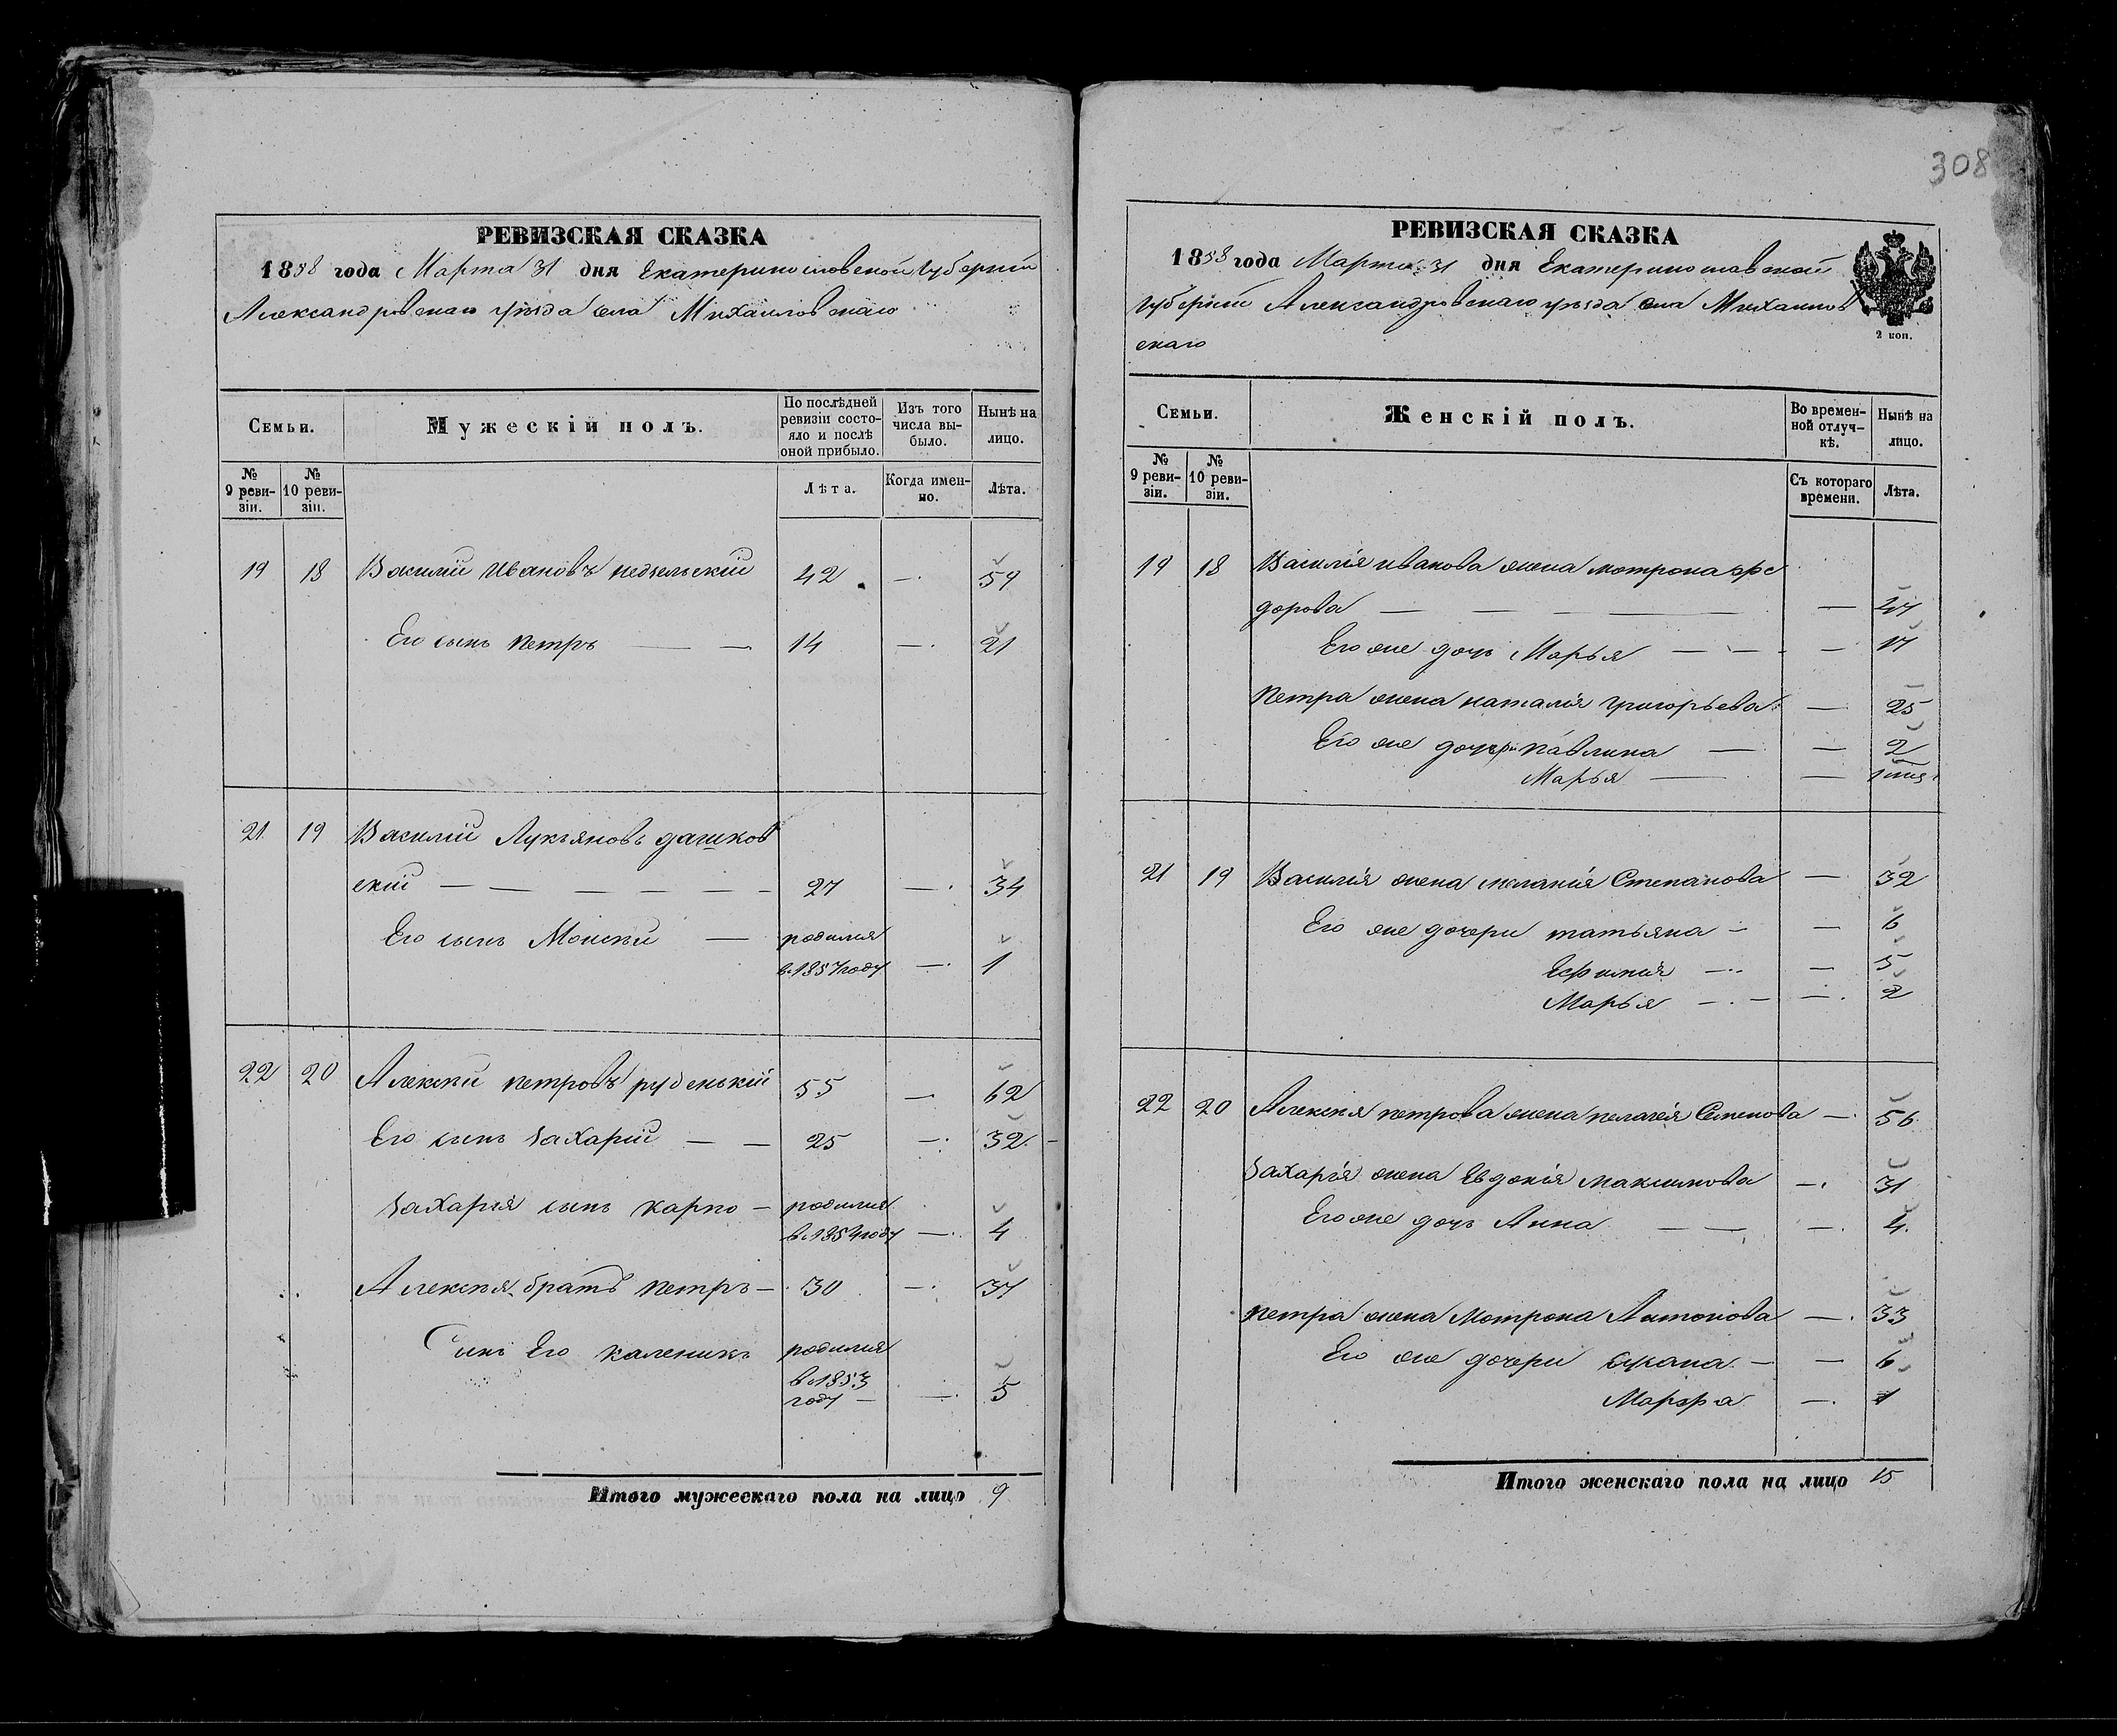 РЕВИЗСКАЯ СКАЗКА
1858 года Марта 31 дня Екатеринославской губерніи
Александровскаго уѣзда села Михайловскаго
Семьи. Мужескій полъ. По послѣдней ревизіи состояло и послѣ оной прибыло. Изъ того числа выбыло. Нынѣ на лицо.
№ 9 ревизіи. № 10 ревизіи. Лѣта. Когда именно. Лѣта.
19 18 Василій Ивановъ недѣльскій 42 — 59
Его сынъ Петръ — 14 — 21
21 19 Василій Лукьяновъ дашков
скій — 27 — 34
Его сынъ Моисей — родился
в 1857 году — 1
22 20 Алексѣй петровъ руденькій 55 — 62
Его сынъ Захарій — 25 — 32
Захарія сынъ карпо — родился
в 1854 году — 4
Алексѣя братъ петръ — 30 — 37
Сынъ Его каленикъ родился
в 1853
году — — 5
Итого мужескаго пола на лицо 9
308
РЕВИЗСКАЯ СКАЗКА
1858 года Марта 31 дня Екатеринославской
губерніи Александровскаго уѣзда села Михайлов
скаго
2 коп.
Семьи. Женскій полъ. Во временной отлучкѣ. Нынѣ на лицо.
№ 9 ревизіи. № 10 ревизіи. Съ котораго времени. Лѣта.
19 18 Василія иванова жена мотрона фе
дорова — — 47
Его же дочь Марья — — 17
Петра жена наталія григорьева — 25
Его же дочери павлина — — 2
Марья — —
21 19 Василія жена меланія Степанова — 32
Его же дочери татьяна — — 6
Ефимія — — 5
Марья — — 2
22 20 Алексѣя петрова жена пелагея Семенова — 56
Захарія жена Евдокія максимова — 31
Его же дочь Анна — — 4
петра жена Мотрона Антонова — 33
Его же дочери — — 6
Марфа — 1
Итого женскаго пола на лицо 15